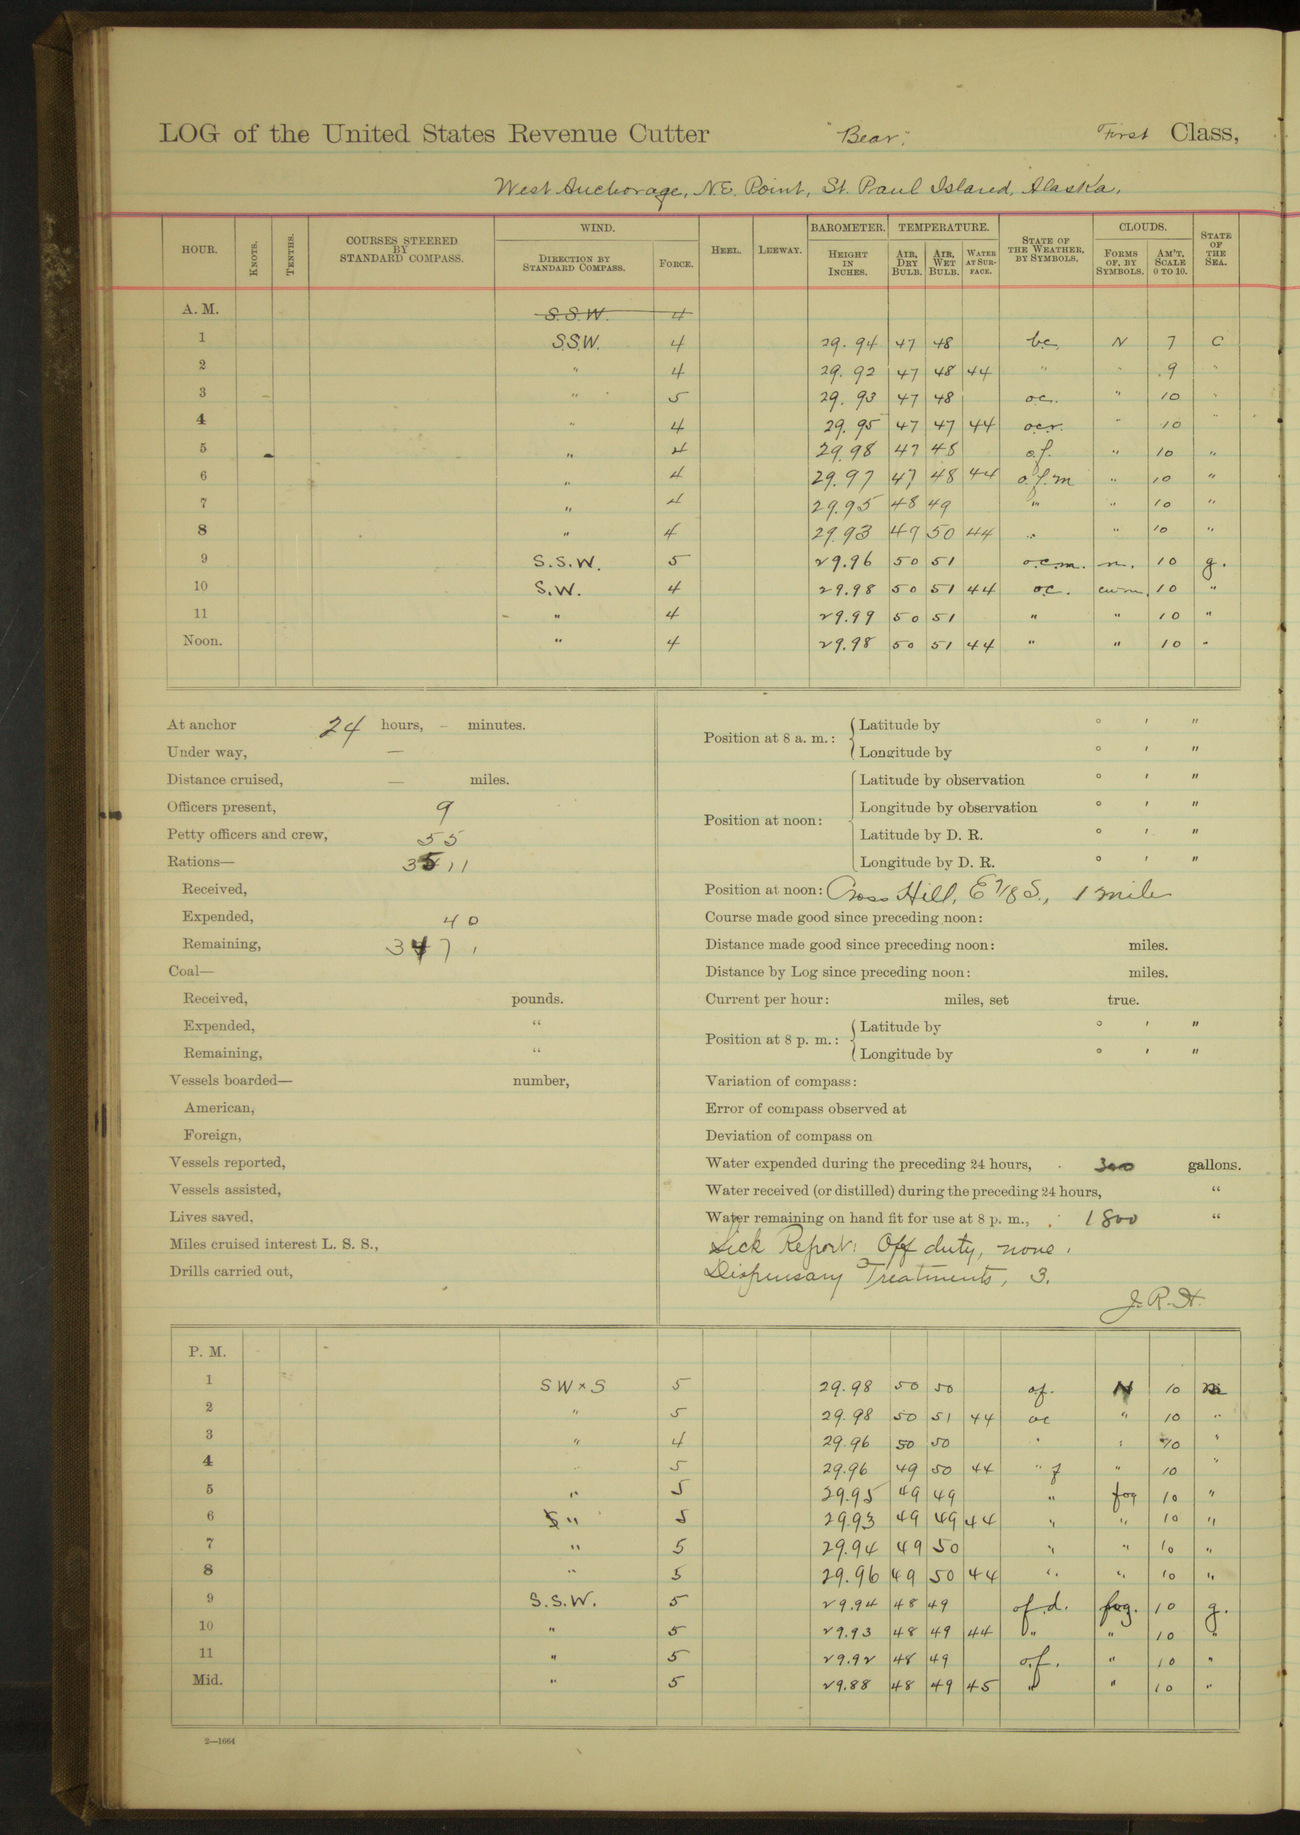 LOG of the United States Revenue Cutter "Bear," First Class,
West Anchorage, N.E. Point, St. Paul Island, Alaska.
HOUR. KNOTS. TENTHS. COURSES STEERED BY STANDARD COMPASS. WIND. DIRECTION BY STANDARD COMPASS. FORCE. HEEL. LEEWAY. BAROMETER. HEIGHT IN INCHES. TEMPERATURE. AIR, DRY BULB. AIR, WET BULB. WATER AT SURFACE. STATE OF THE WEATHER, BY SYMBOLS. CLOUDS. FORMS OF, BY SYMBOLS. AM'T, SCALE 0 TO 10. STATE OF THE SEA.
A. M. S.S.W. 4
1 S.S.W. 4 29.94 47 48 b.c. N 7 C
2 " 4 29.92 47 48 44 " " 9 "
3 " 5 29.93 47 48 o.c. " 10 "
4 " 4 29.95 47 47 44 o.c.r. " 10 "
5 " 4 29.98 47 48 o.f. " 10 "
6 " 4 29.97 47 48 44 o.f.m " 10 "
7 " 4 29.95 48 49 " " 10 "
8 " 4 29.93 49 50 44 " " 10 "
9 S.S.W. 5 29.96 50 51 o.c.m. n. 10 g.
10 S.W. 4 29.98 50 51 44 o.c. cum. 10 "
11 " 4 29.99 50 51 " " 10 "
Noon. " 4 29.98 50 51 44 " " 10 "
At anchor 24 hours, – minutes.
Under way, —
Distance cruised, — miles.
Officers present, 9
Petty officers and crew, 55
Rations— 3511
Received,
Expended, 40
Remaining, 3471
Coal—
Received, pounds.
Expended, "
Remaining, "
Vessels boarded— number,
American,
Foreign,
Vessels reported,
Vessels assisted,
Lives saved,
Miles cruised interest L. S. S.,
Drills carried out,
Position at 8 a. m.: Latitude by ° ' "
Longitude by ° ' "
Position at noon: Latitude by observation ° ' "
Longitude by observation ° ' "
Latitude by D. R. ° ' "
Longitude by D. R. ° ' "
Position at noon: Cross Hill, E 7/8 S., 1 mile
Course made good since preceding noon:
Distance made good since preceding noon: miles.
Distance by Log since preceding noon: miles.
Current per hour: miles, set true.
Position at 8 p. m.: Latitude by ° ' "
Longitude by ° ' "
Variation of compass:
Error of compass observed at
Deviation of compass on
Water expended during the preceding 24 hours, 300 gallons.
Water received (or distilled) during the preceding 24 hours, "
Water remaining on hand fit for use at 8 p. m., 1800 "
Sick Report: Off duty, none.
Dispensary Treatments, 3.
J.R.H.
P. M.
1 SW×S 5 29.98 50 50 of. N 10
2 " 5 29.98 50 51 44 oc " 10 "
3 " 4 29.96 50 50 " " 10 "
4 " 5 29.96 49 50 44 " f " 10 "
5 " 5 29.95 49 49 " fog 10 "
6 " 5 29.93 49 49 44 " " 10 "
7 " 5 29.94 49 50 " " 10 "
8 " 5 29.96 49 50 44 " " 10 "
9 S.S.W. 5 29.94 48 49 of.d. fog. 10 g.
10 " 5 29.93 48 49 44 " " 10 "
11 " 5 29.92 48 49 o.f. " 10 "
Mid. " 5 29.88 48 49 45 " " 10 "
2—1664